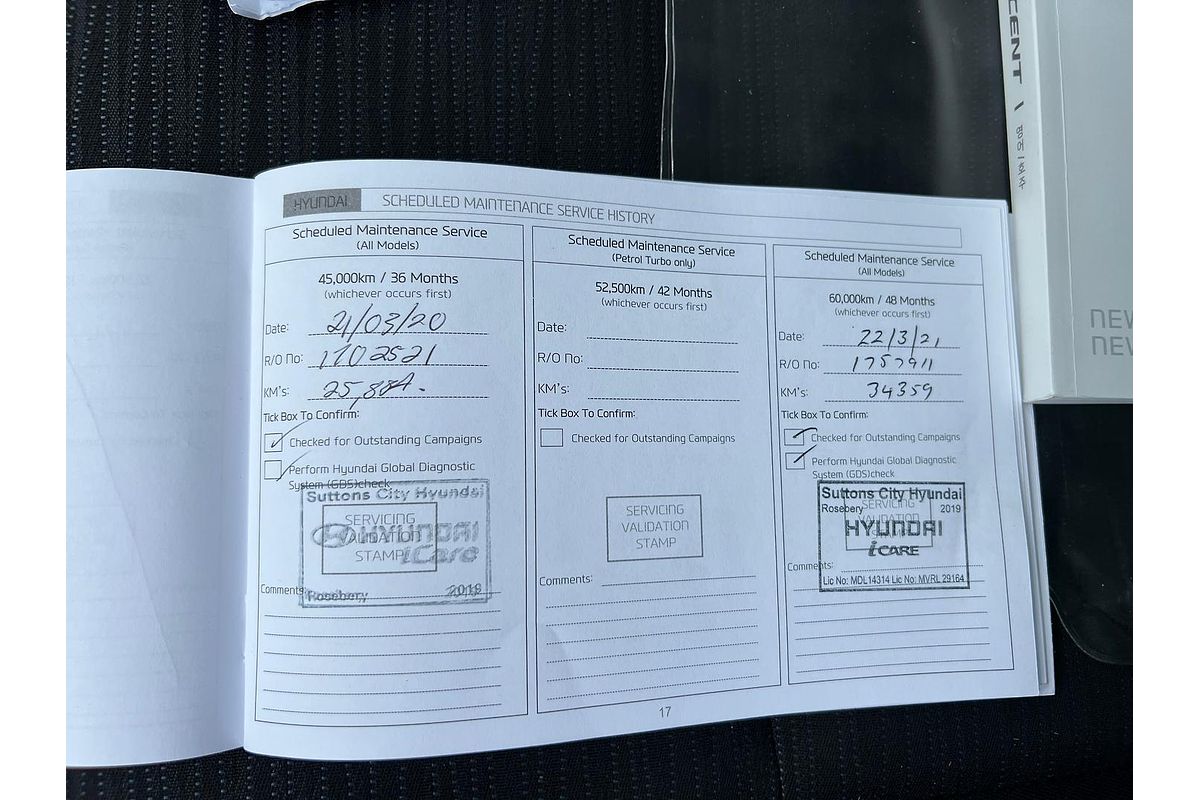 HYUNDAI SCHEDULED MAINTENANCE SERVICE HISTORY
Scheduled Maintenance Service
(All Models)
45,000km / 36 Months
(whichever occurs first)
Date: 21/03/20
R/O No: 1702521
KM's:
Tick Box To Confirm:
Checked for Outstanding Campaigns
Perform Hyundai Global Diagnostic
System (GDS)check
Suttons City Hyundai
SERVICING
VALIDATION
STAMP
HYUNDAI
iCare
Comments:
Rosebery 2019
Scheduled Maintenance Service
(Petrol Turbo only)
52,500km / 42 Months
(whichever occurs first)
Date:
R/O No:
KM's:
Tick Box To Confirm:
Checked for Outstanding Campaigns
SERVICING
VALIDATION
STAMP
Comments:
Scheduled Maintenance Service
(All Models)
60,000km / 48 Months
(whichever occurs first)
Date: 22/3/21
R/O No: 1757911
KM's: 34359
Tick Box To Confirm:
Checked for Outstanding Campaigns
Perform Hyundai Global Diagnostic
System (GDS)check
Suttons City Hyundai
SERVICING
Rosebery 2019
VALIDATION
STAMP
HYUNDAI
iCARE
Comments:
Lic No: MDL14314 Lic No: MVRL 29164
17
CENT
NEW
NEW